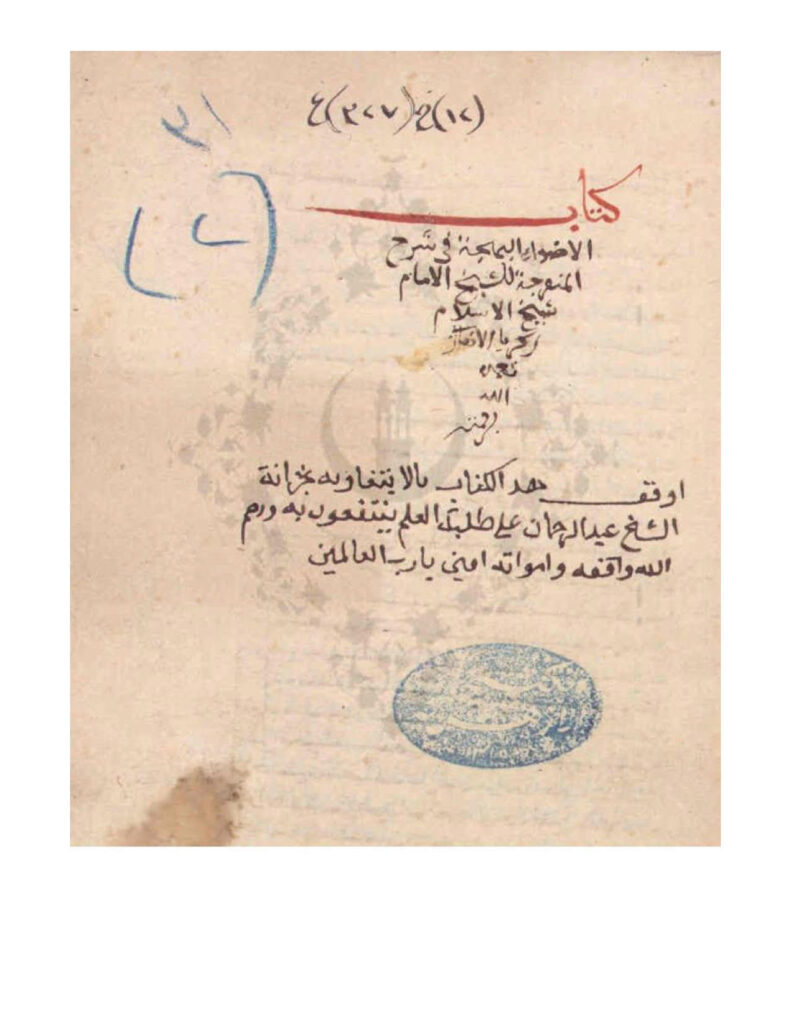 (١٢) خ (٣٢٧) ع
٣١
(٢)
كتاب
الاضواء البهجة في شرح
المنفرجة للشيخ الامام
شيخ الاسلام
زكريا الانصاري
تغمده
الله
برحمته
اوقف هذ الكتاب بالايتغاوبه بخزانة
الشخ عبد الرحمان على طلبة العلم ينتفعون به ورحم
الله واقفه وامواته امين يارب العالمين